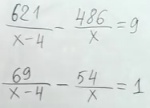 621/(x-4) - 486/x = 9
69/(x-4) - 54/x = 1